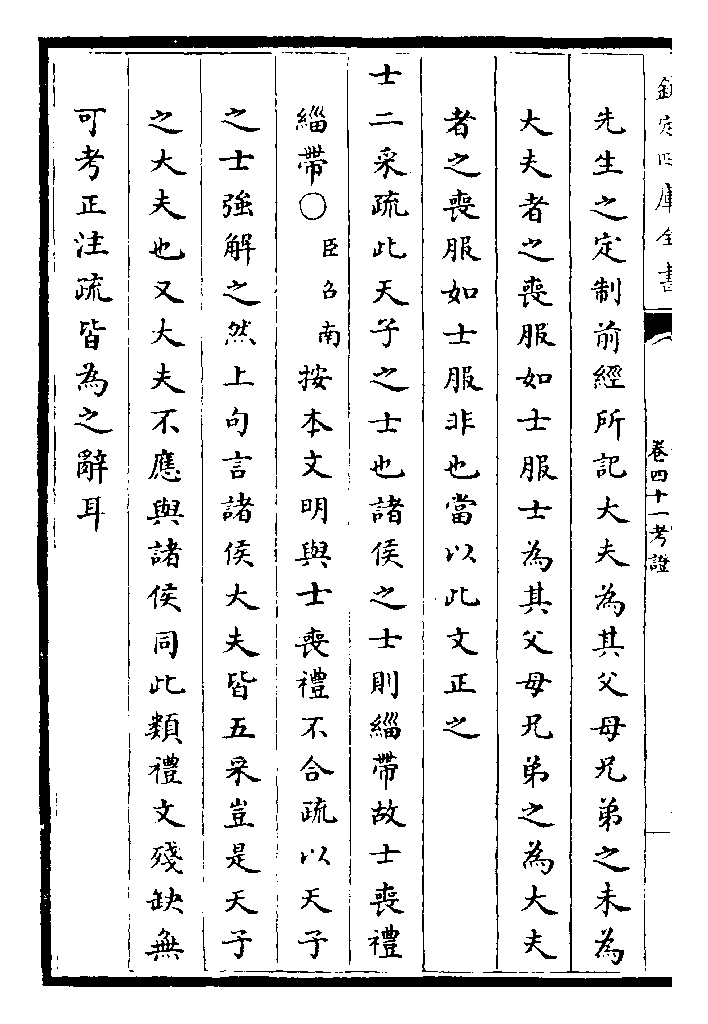 欽定四庫全書
卷四十一考證
先生之定制前經所記大夫為其父母兄弟之未為
大夫者之喪服如士服士為其父母兄弟之為大夫
者之喪服如士服非也當以此文正之
士二采疏此天子之士也諸侯之士則緇帶故士喪禮
緇帶○臣召南按本文明與士喪禮不合疏以天子
之士強解之然上句言諸侯大夫皆五采豈是天子
之大夫也又大夫不應與諸侯同此類禮文殘缺無
可考正注疏皆為之辭耳